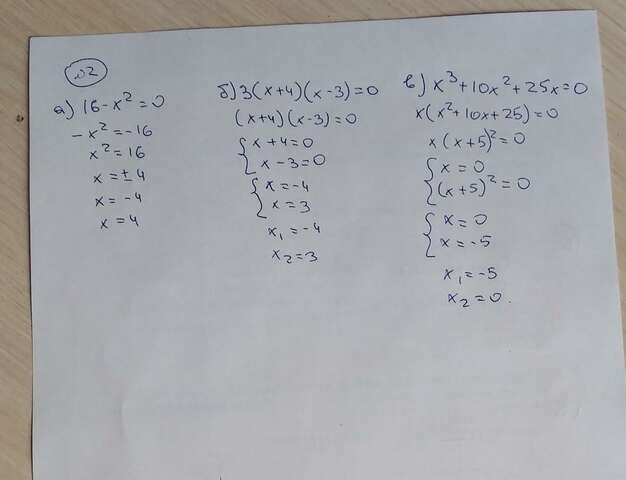 02
а) 16-x²=0
-x²=-16
x²=16
x=±4
x=-4
x=4
б) 3(x+4)(x-3)=0
(x+4)(x-3)=0
{x+4=0
x-3=0
{x=-4
x=3
x₁=-4
x₂=3
в) x³+10x²+25x=0
x(x²+10x+25)=0
x(x+5)²=0
{x=0
(x+5)²=0
{x=0
x=-5
x₁=-5
x₂=0.